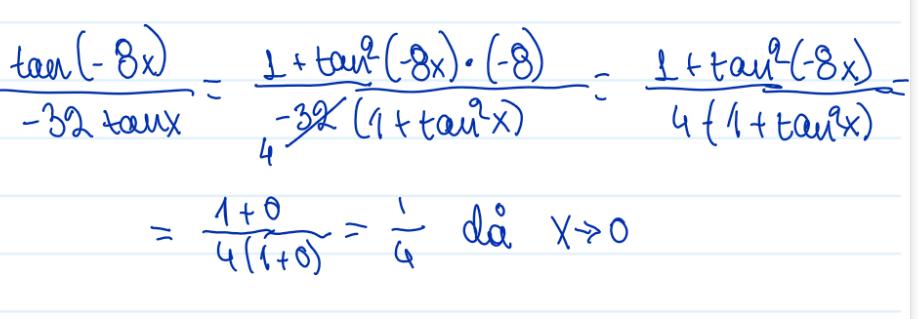 tan(-8x)/(-32 tanx) = (1 + tan²(-8x)·(-8))/(-32 4 (1 + tan²x)) = (1 + tan²(-8x))/(4(1 + tan²x)) =
= (1+0)/(4(1+0)) = 1/4 då x→0